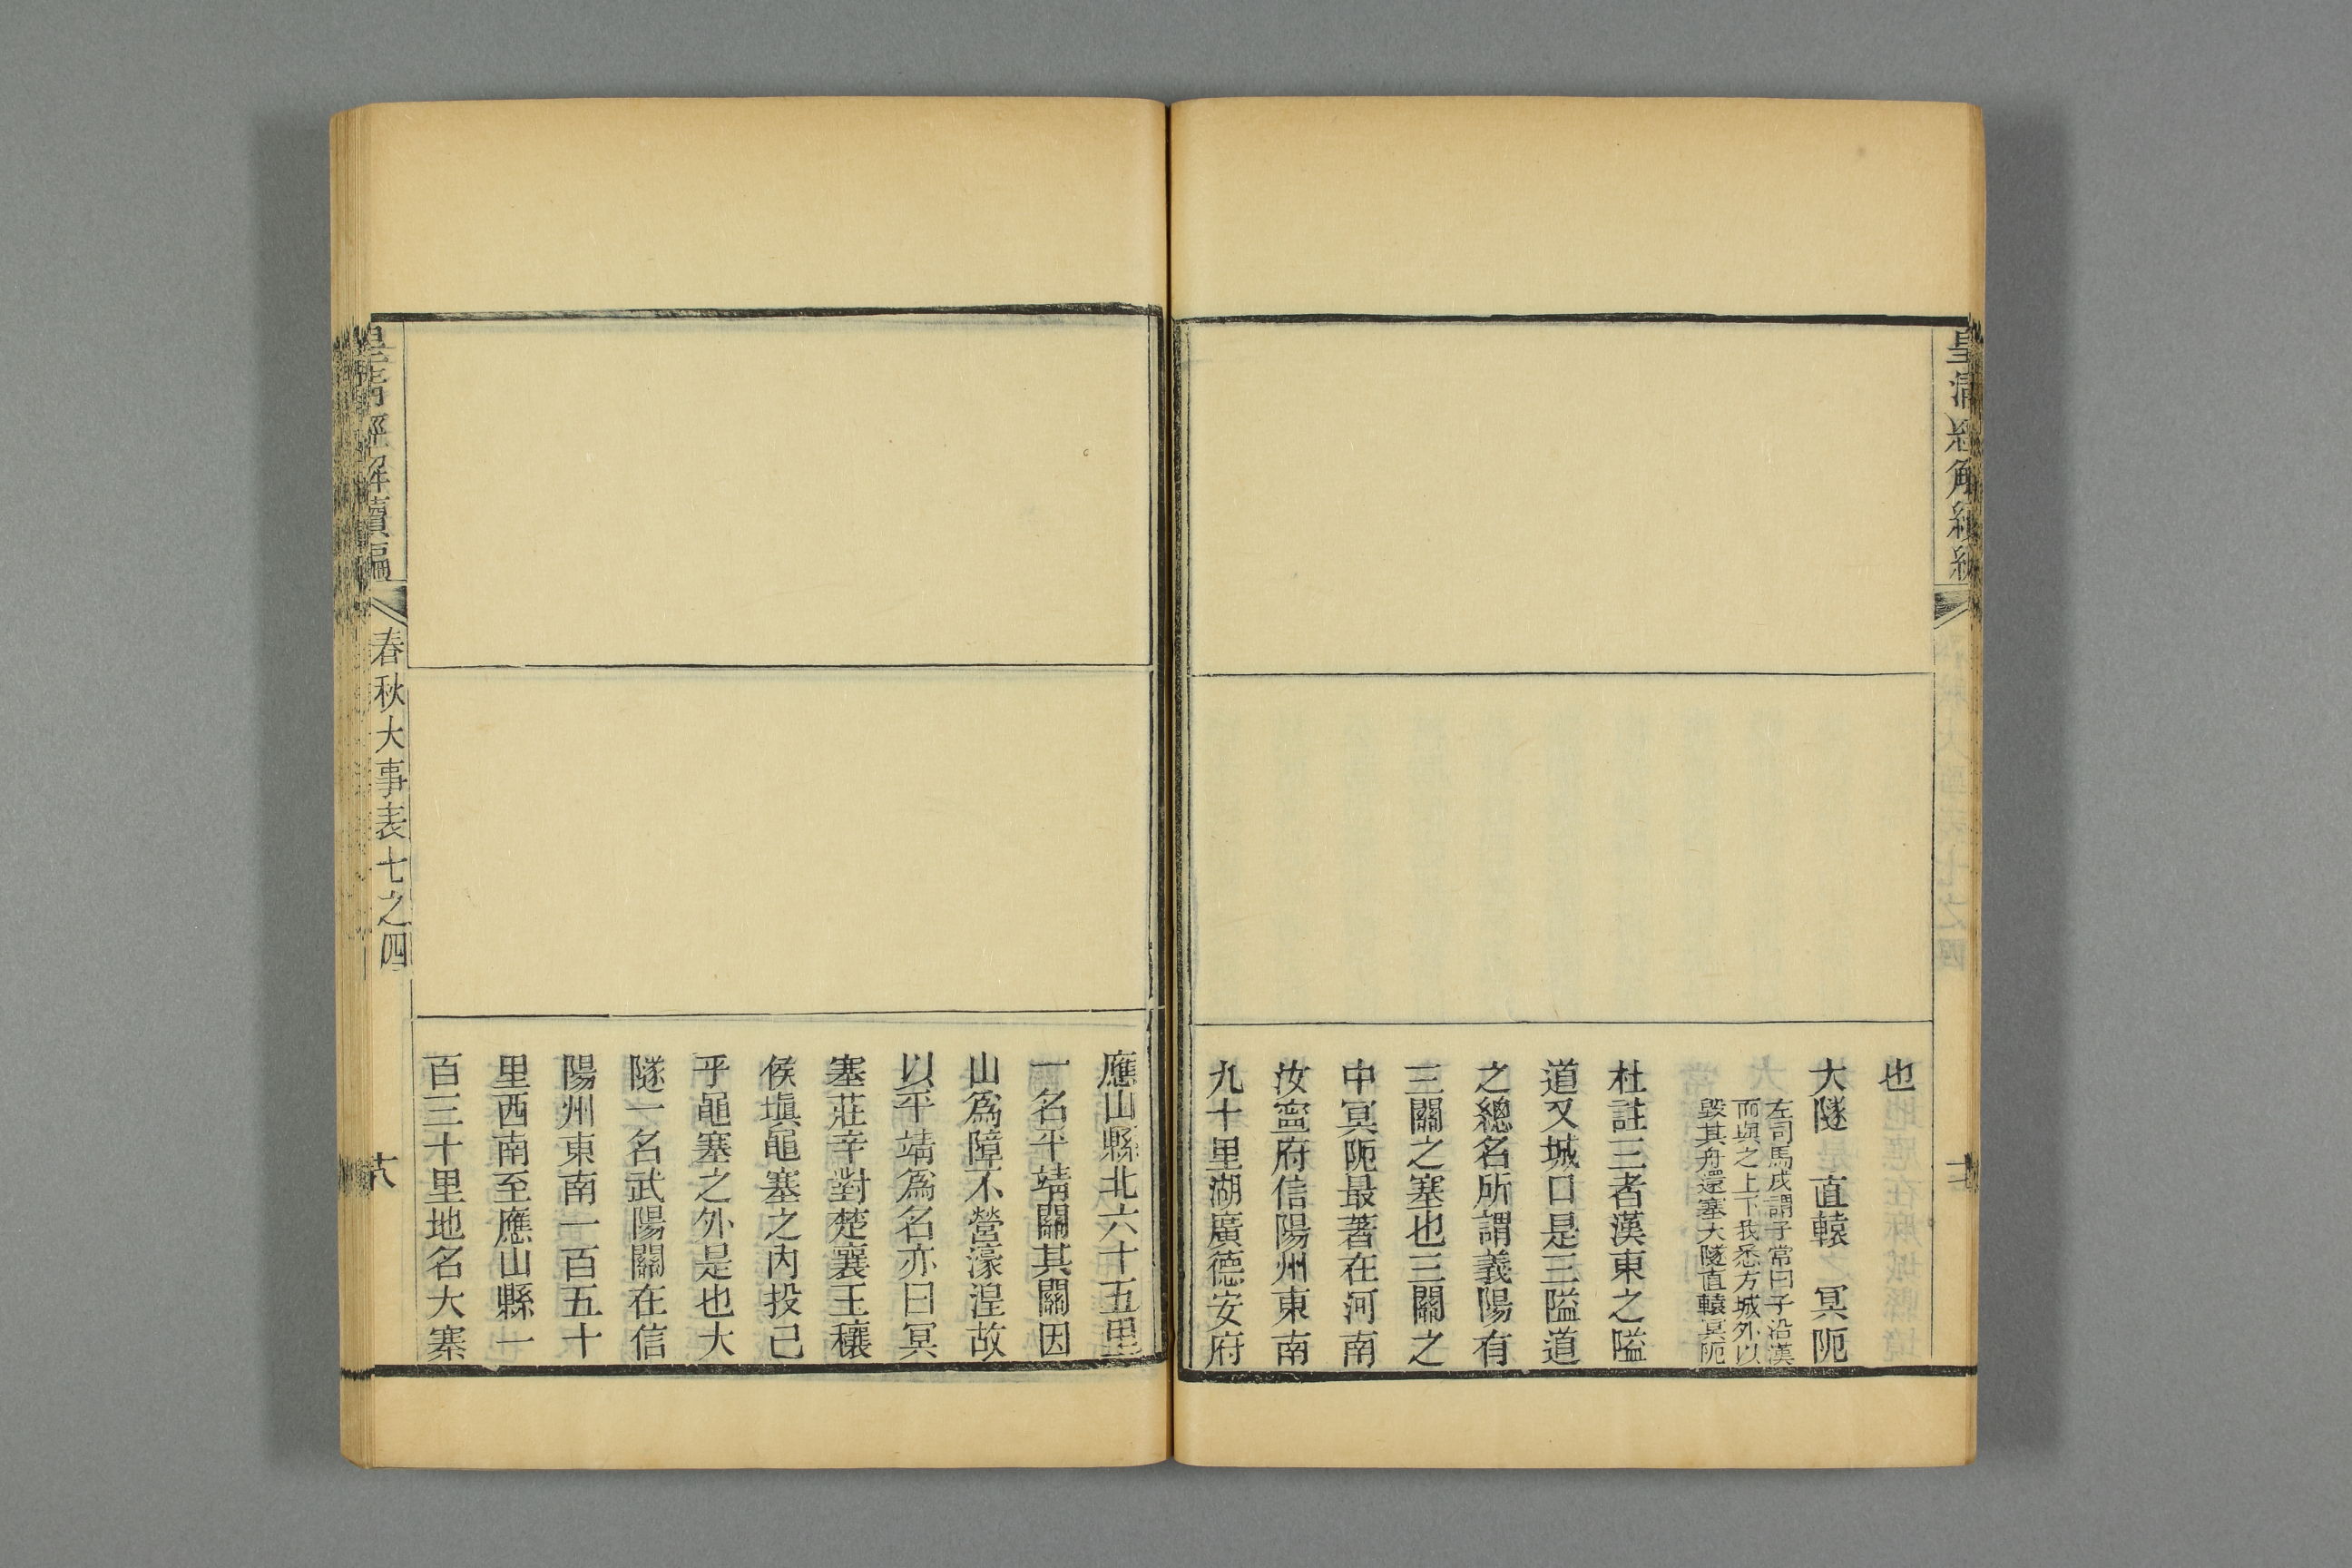 也
大隧　直轅　冥阨
左司馬戌謂子常曰子沿漢
而與之上下我悉方城外以
毀其舟還塞大隧直轅冥阨
杜註三者漢東之隘
道又城口是三隘道
之總名所謂義陽有
三關之塞也三關之
中冥阨最著在河南
汝寧府信陽州東南
九十里湖廣德安府
應山縣北六十五里
一名平靖關其關因
山爲障不營濠湟故
以平靖爲名亦曰冥
塞莊辛對楚襄王穰
侯塡黽塞之內投己
乎黽塞之外是也大
隧一名武陽關在信
陽州東南一百五十
里西南至應山縣一
百三十里地名大寨
皇清經解續編
春秋大事表七之四